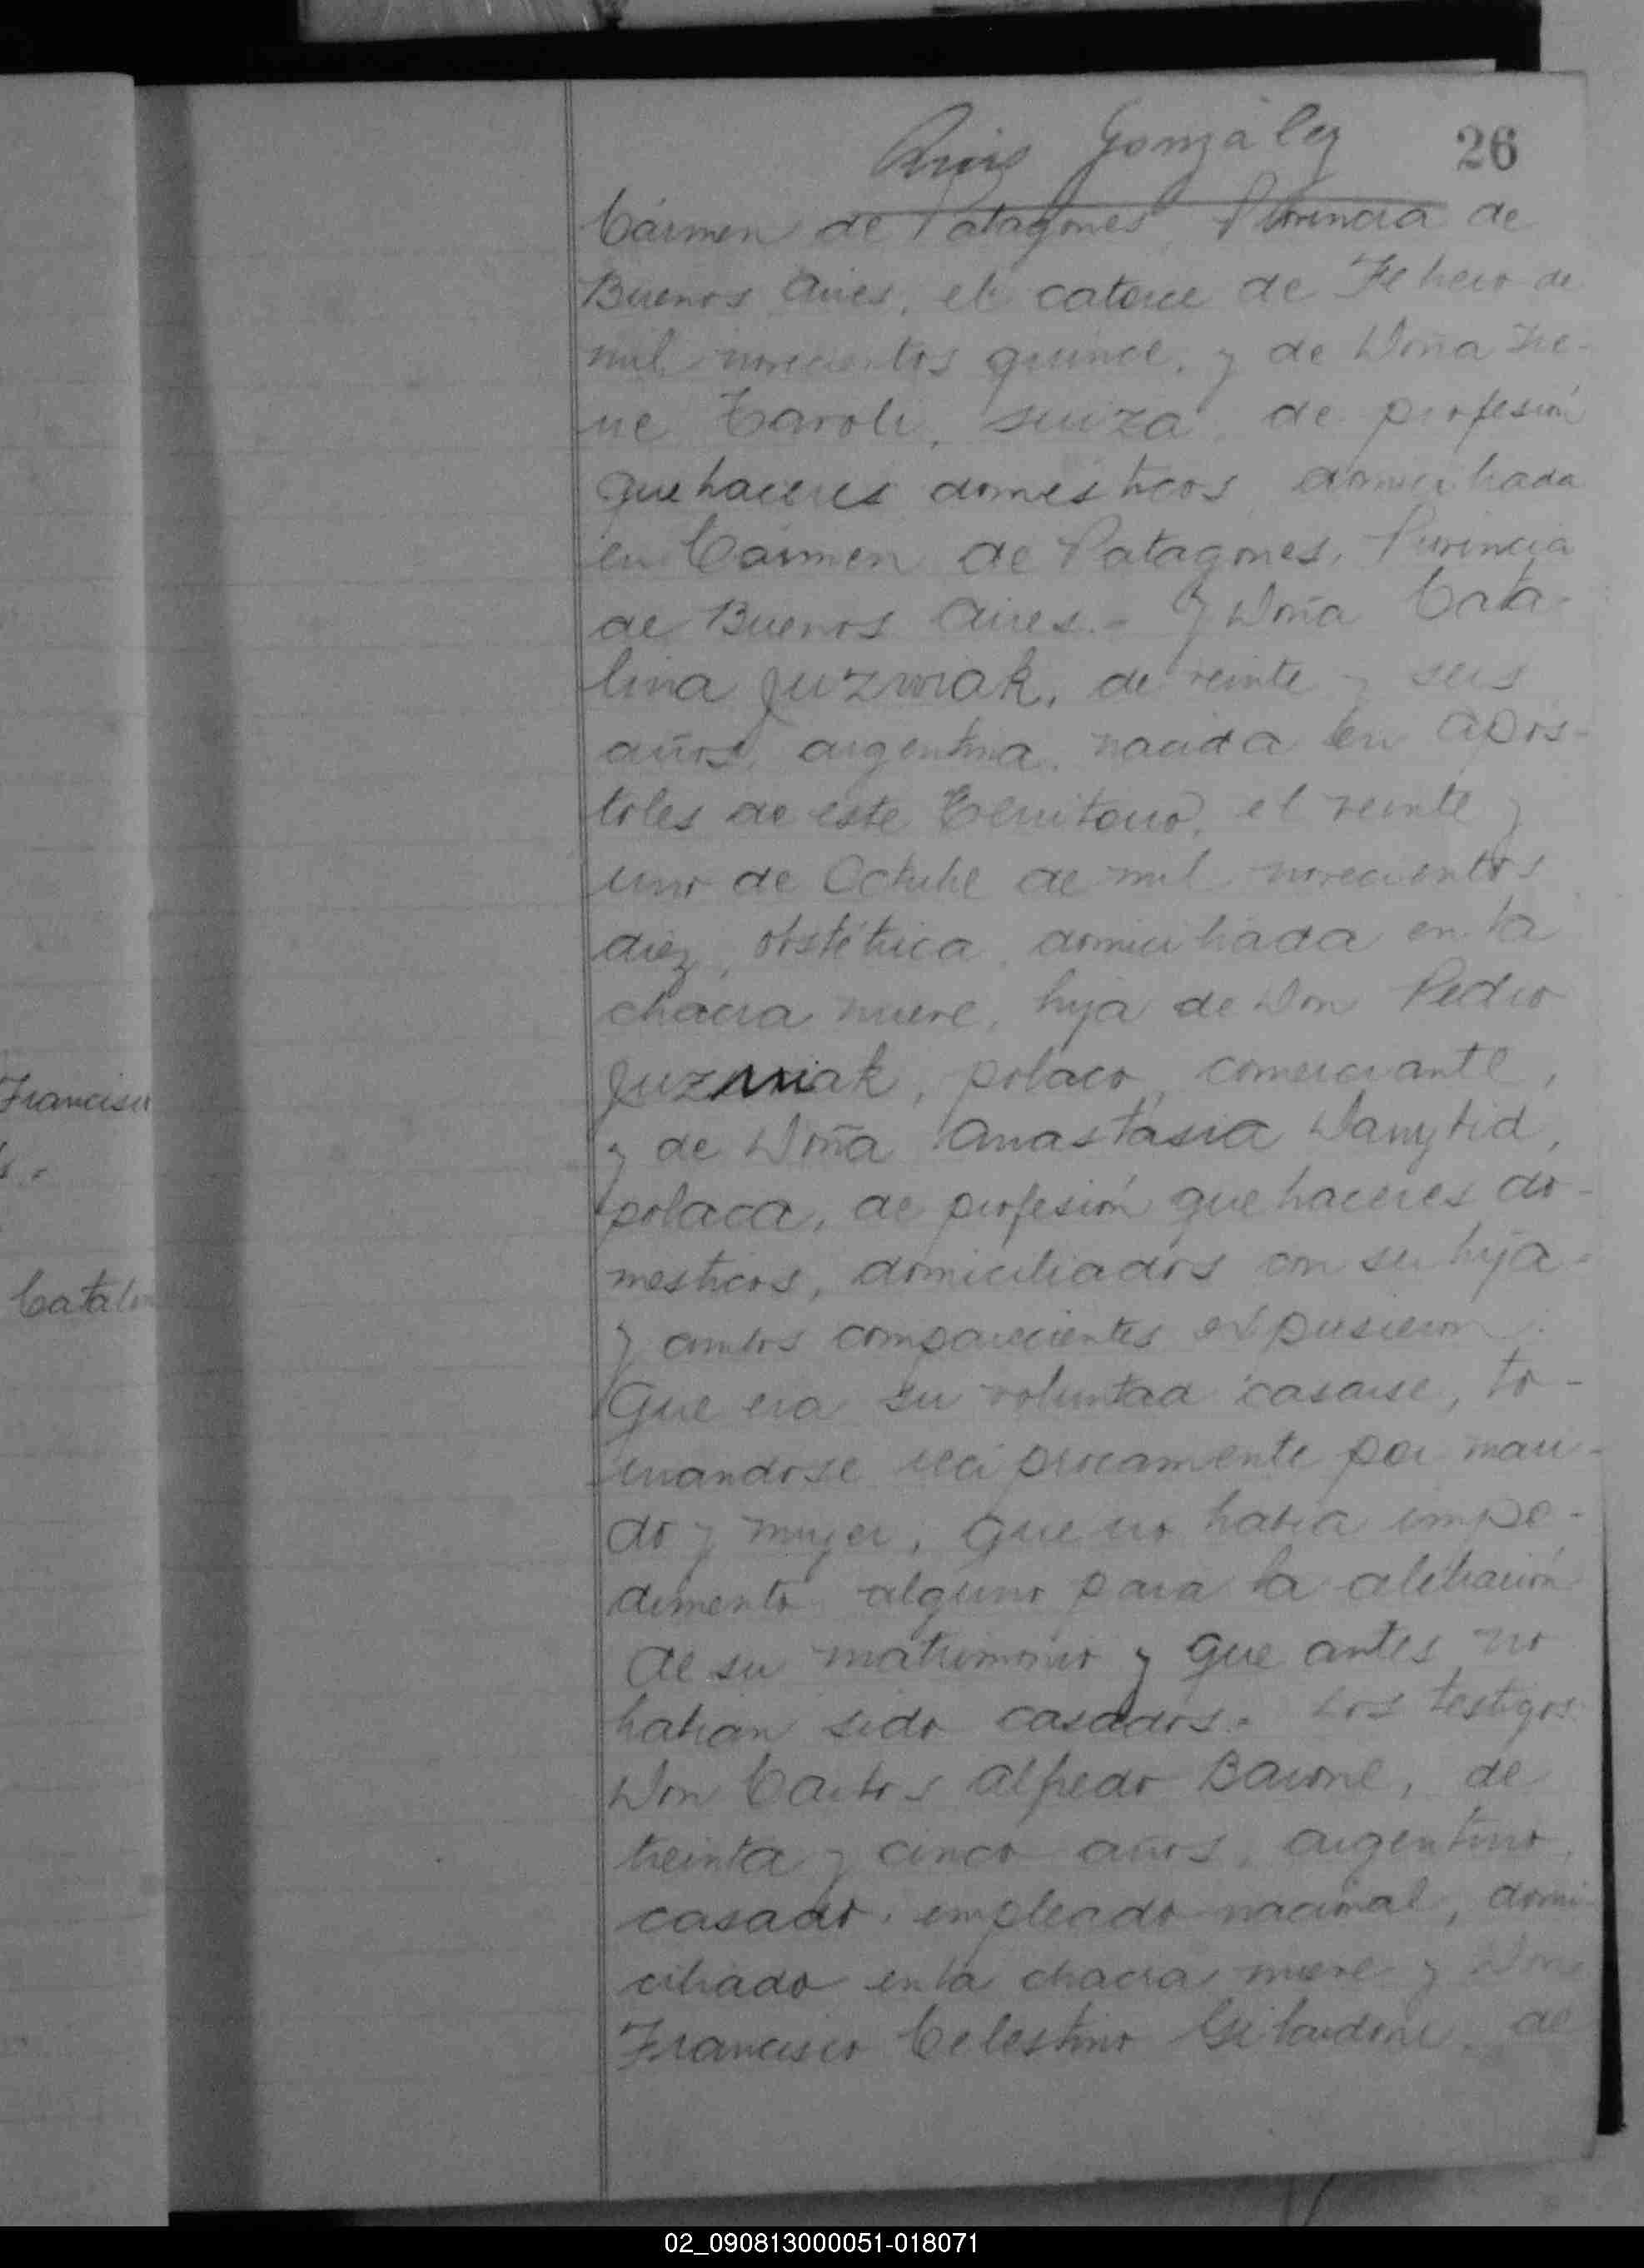 Ruiz González
26
Cármen de Patagones, Provincia de
Buenos Aires, el catorce de Febrero de
mil novecientos quince, y de Doña Ire-
ne Caroli, suiza, de profesión
quehaceres domésticos, domiciliada
en Cármen de Patagones, Provincia
de Buenos Aires.- Y Doña Cata-
lina Juzwiak, de veinte y seis
años, argentina, nacida en Após-
toles de este Territorio, el veinte y
uno de Octubre de mil novecientos
diez, obstétrica, domiciliada en la
chacra nueve, hija de Don Pedro
Juzwiak, polaco, comerciante,
y de Doña Anastasia
polaca, de profesión quehaceres do-
mesticos, domiciliados con su hija.-
Y ambos comparecientes expusieron:
Que era su voluntad casarse, to-
mandose reciprocamente por mari-
do y mujer, que no habia impe-
dimento alguno para la celebración
de su matrimonio y que antes no
habian sido casados.- Los testigos
Don Carlos Alfredo Barone, de
treinta y cinco años, argentino,
casado, empleado nacional, domi-
ciliado en la chacra nueve y Don
Francisco Celestino de
Francisco
Catalin
02_090813000051-018071